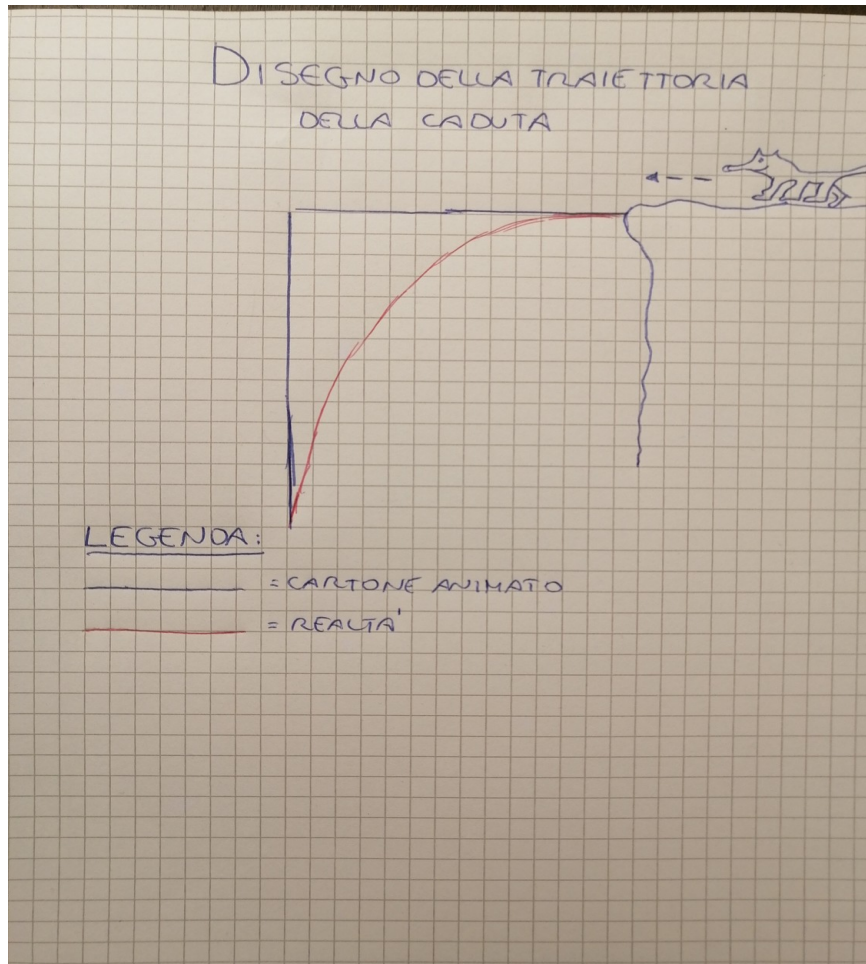 DISEGNO DELLA TRAIETTORIA
DELLA CADUTA
LEGENDA:
= CARTONE ANIMATO
= REALTA'